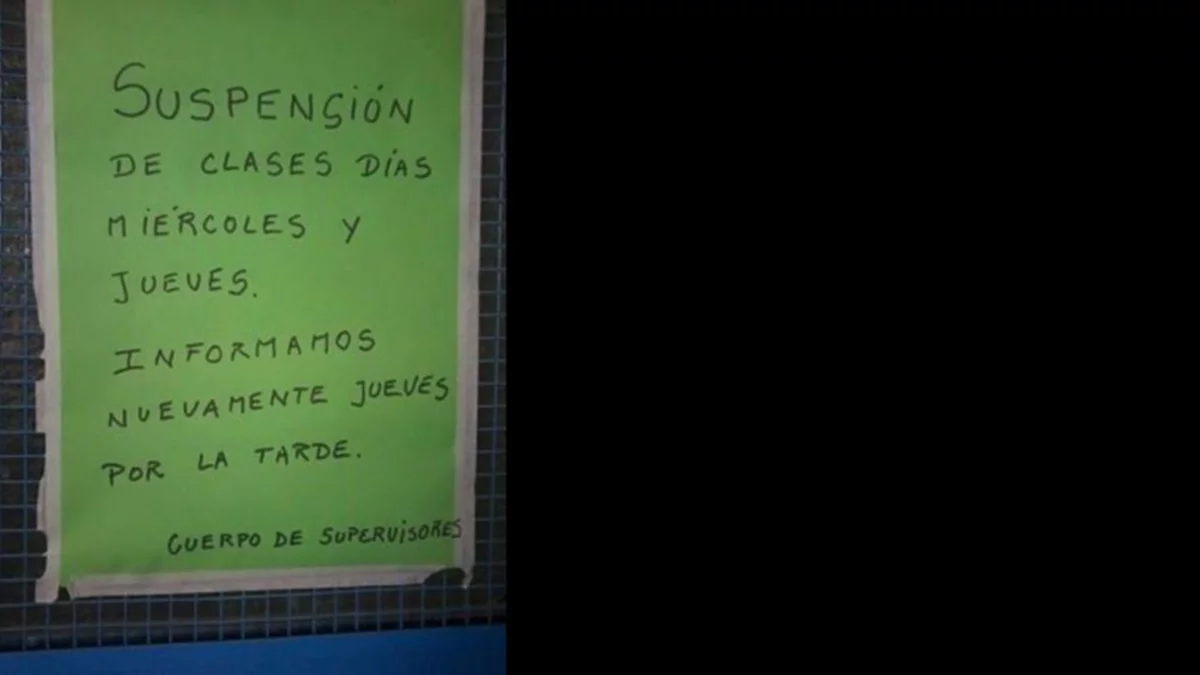 SUSPENSIÓN
DE CLASES DÍAS
MIÉRCOLES Y
JUEVES.
INFORMAMOS
NUEVAMENTE JUEVES
POR LA TARDE.
CUERPO DE SUPERVISORES